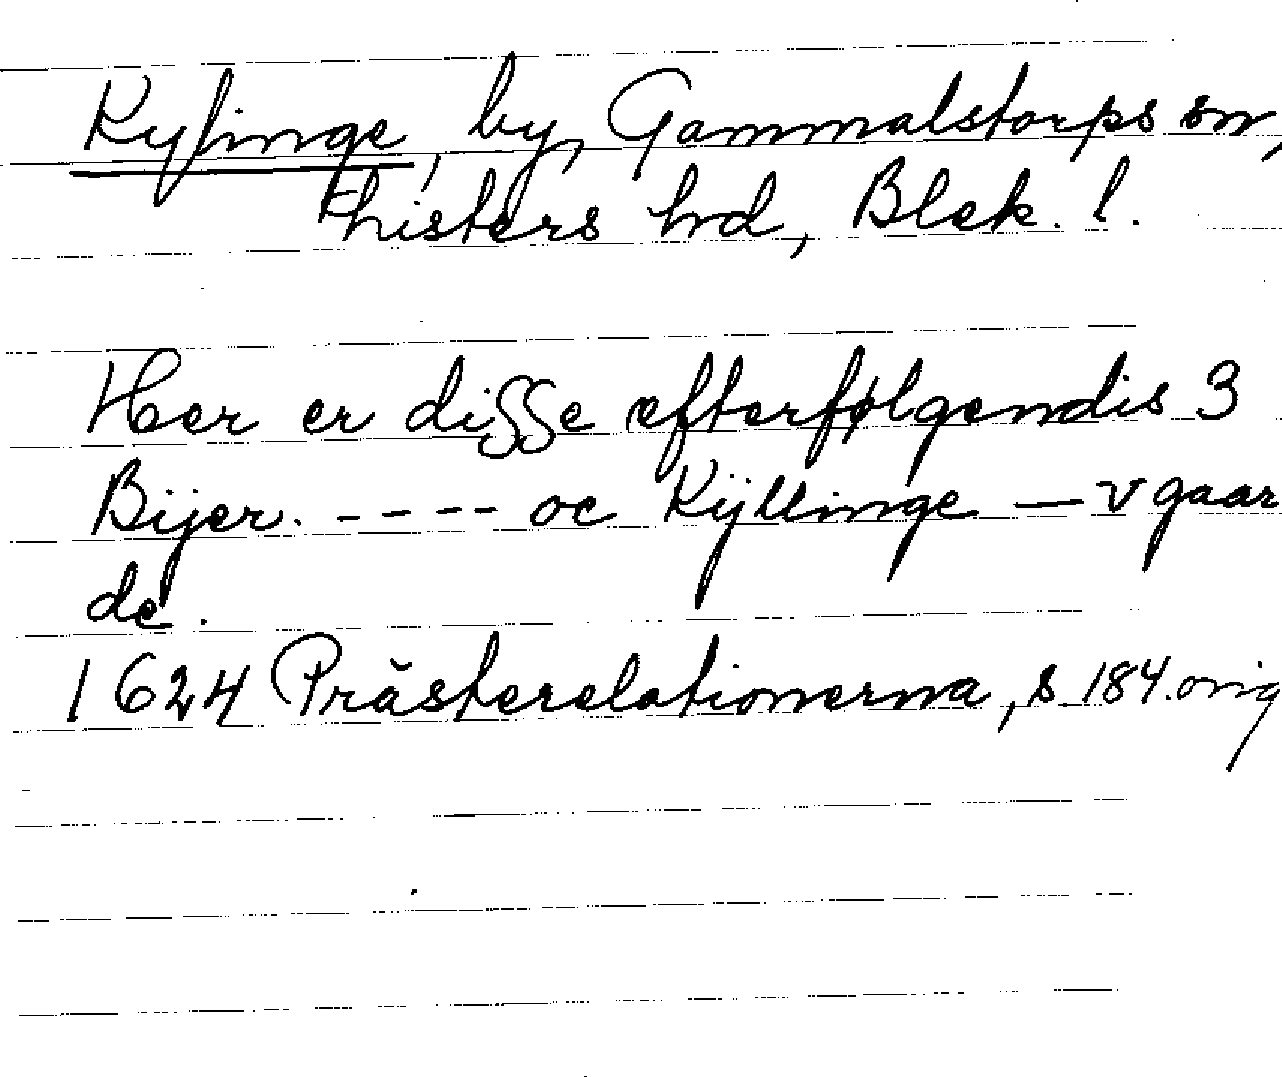 Kylinge, by, Gammalstorps sn,
Listers hd, Blek. l.
Her er diſſe efterfølgendis 3
Bijer. - - - - oc Kÿllinge — v gaar
de.
1624 Prästerelationerna, s. 184. orig